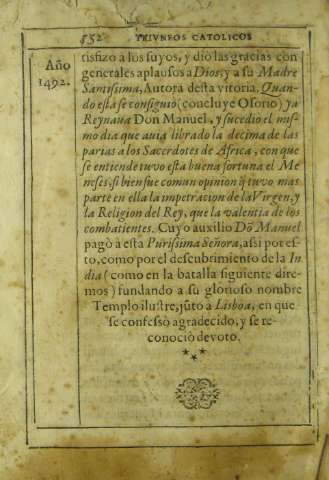 552 TRIVNFOS CATOLICOS
Año
1492.
tisfizo a los suyos, y diò las gracias con
generales aplausos a Dios, y a su Madre
Santissima, Autora desta vitoria. Quan-
do esta se consiguiò (concluye Osorio) ya
Reynaua Don Manuel, y sucedio el mis-
mo dia que auia librado la decima de las
parias a los Sacerdotes de Africa, con que
se entiende tuvo esta buena fortuna el Me
neses, si bien fue comun opinion q̃ tuvo mas
parte en ella la impetracion de la Virgen, y
la Religion del Rey, que la valentia de los
combatientes. Cuyo auxilio Dõ Manuel
pagò a esta Purissima Señora, assi por es-
to, como por el descubrimiento de la In
dia (como en la batalla siguiente dire-
mos) fundando a su glorioso nombre
Templo ilustre, jũto a Lisboa, en que
se confessò agradecido, y se re-
conociò devoto.